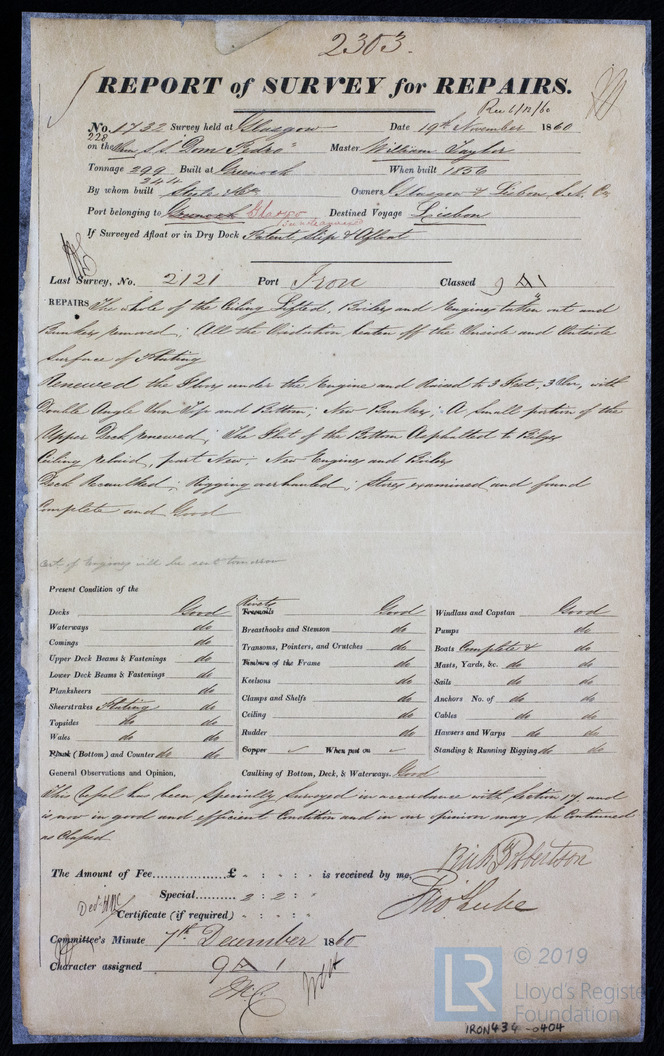 2303.
REPORT of SURVEY for REPAIRS.
Rec 6/12/60
No. 1732 Survey held at Glasgow Date 19th November 1860
228
on the S.S. "Dom Pedro" Master William Taylor
Tonnage 299 Built at Greenock When built 1856
244
By whom built Steele & Co Owners Glasgow & Lisbon S.N. Co
Port belonging to Greenock Glasgow Destined Voyage Lisbon
If Surveyed Afloat or in Dry Dock Patent Slip & Afloat
Last Survey, No. 2121 Port Iron Classed 9 A 1
REPAIRS The whole of the Ceiling Lifted, Boilers and Engines taken out and
Bunkers removed; All the Oxidation beaten off the Inside and Outside
Surface of Plating
Renewed the Floors under the Engine and Raised to 3 Feet, 3 In, with
Double Angle Iron Top and Bottom; New Bunkers; A small portion of the
Upper Deck renewed; The Flat of the Bottom Asphalted to Bilges
Ceiling relaid, part New; New Engines and Boilers
Deck Recaulked; Rigging overhauled; Stores examined and found
Complete and Good
Cert. of Engines will be sent tomorrow
Present Condition of the
Decks Good
Waterways do
Comings do
Upper Deck Beams & Fastenings do
Lower Deck Beams & Fastenings do
Planksheers do
Sheerstrakes Plating do
Topsides do do
Wales do do
Plank (Bottom) and Counter do do
Rivets
Treenails Good
Breasthooks and Stemson do
Transoms, Pointers, and Crutches do
Timbers of the Frame do
Keelsons do
Clamps and Shelfs do
Ceiling do
Rudder do
Copper ✓ When put on ✓
Windlass and Capstan Good
Pumps do
Boats Complete & do
Masts, Yards, &c. do do
Sails do do
Anchors No. of do do
Cables do do
Hawsers and Warps do do
Standing & Running Rigging do do
General Observations and Opinion, Caulking of Bottom, Deck, & Waterways. Good
This Vessel has been Specially Surveyed in accordance with Section 17, and
is now in good and efficient Condition and in our opinion may be Continued
as Classed
The Amount of Fee..............£ " : " : " is received by me,
Richd Robertson
Special......... 2 : 2 : "
Thos Luke
Certificate (if required) " : " : "
Committee's Minute 7th December 1860
Character assigned 9 A 1
© 2019
LR
Lloyd's Register
Foundation
IRON434-0404